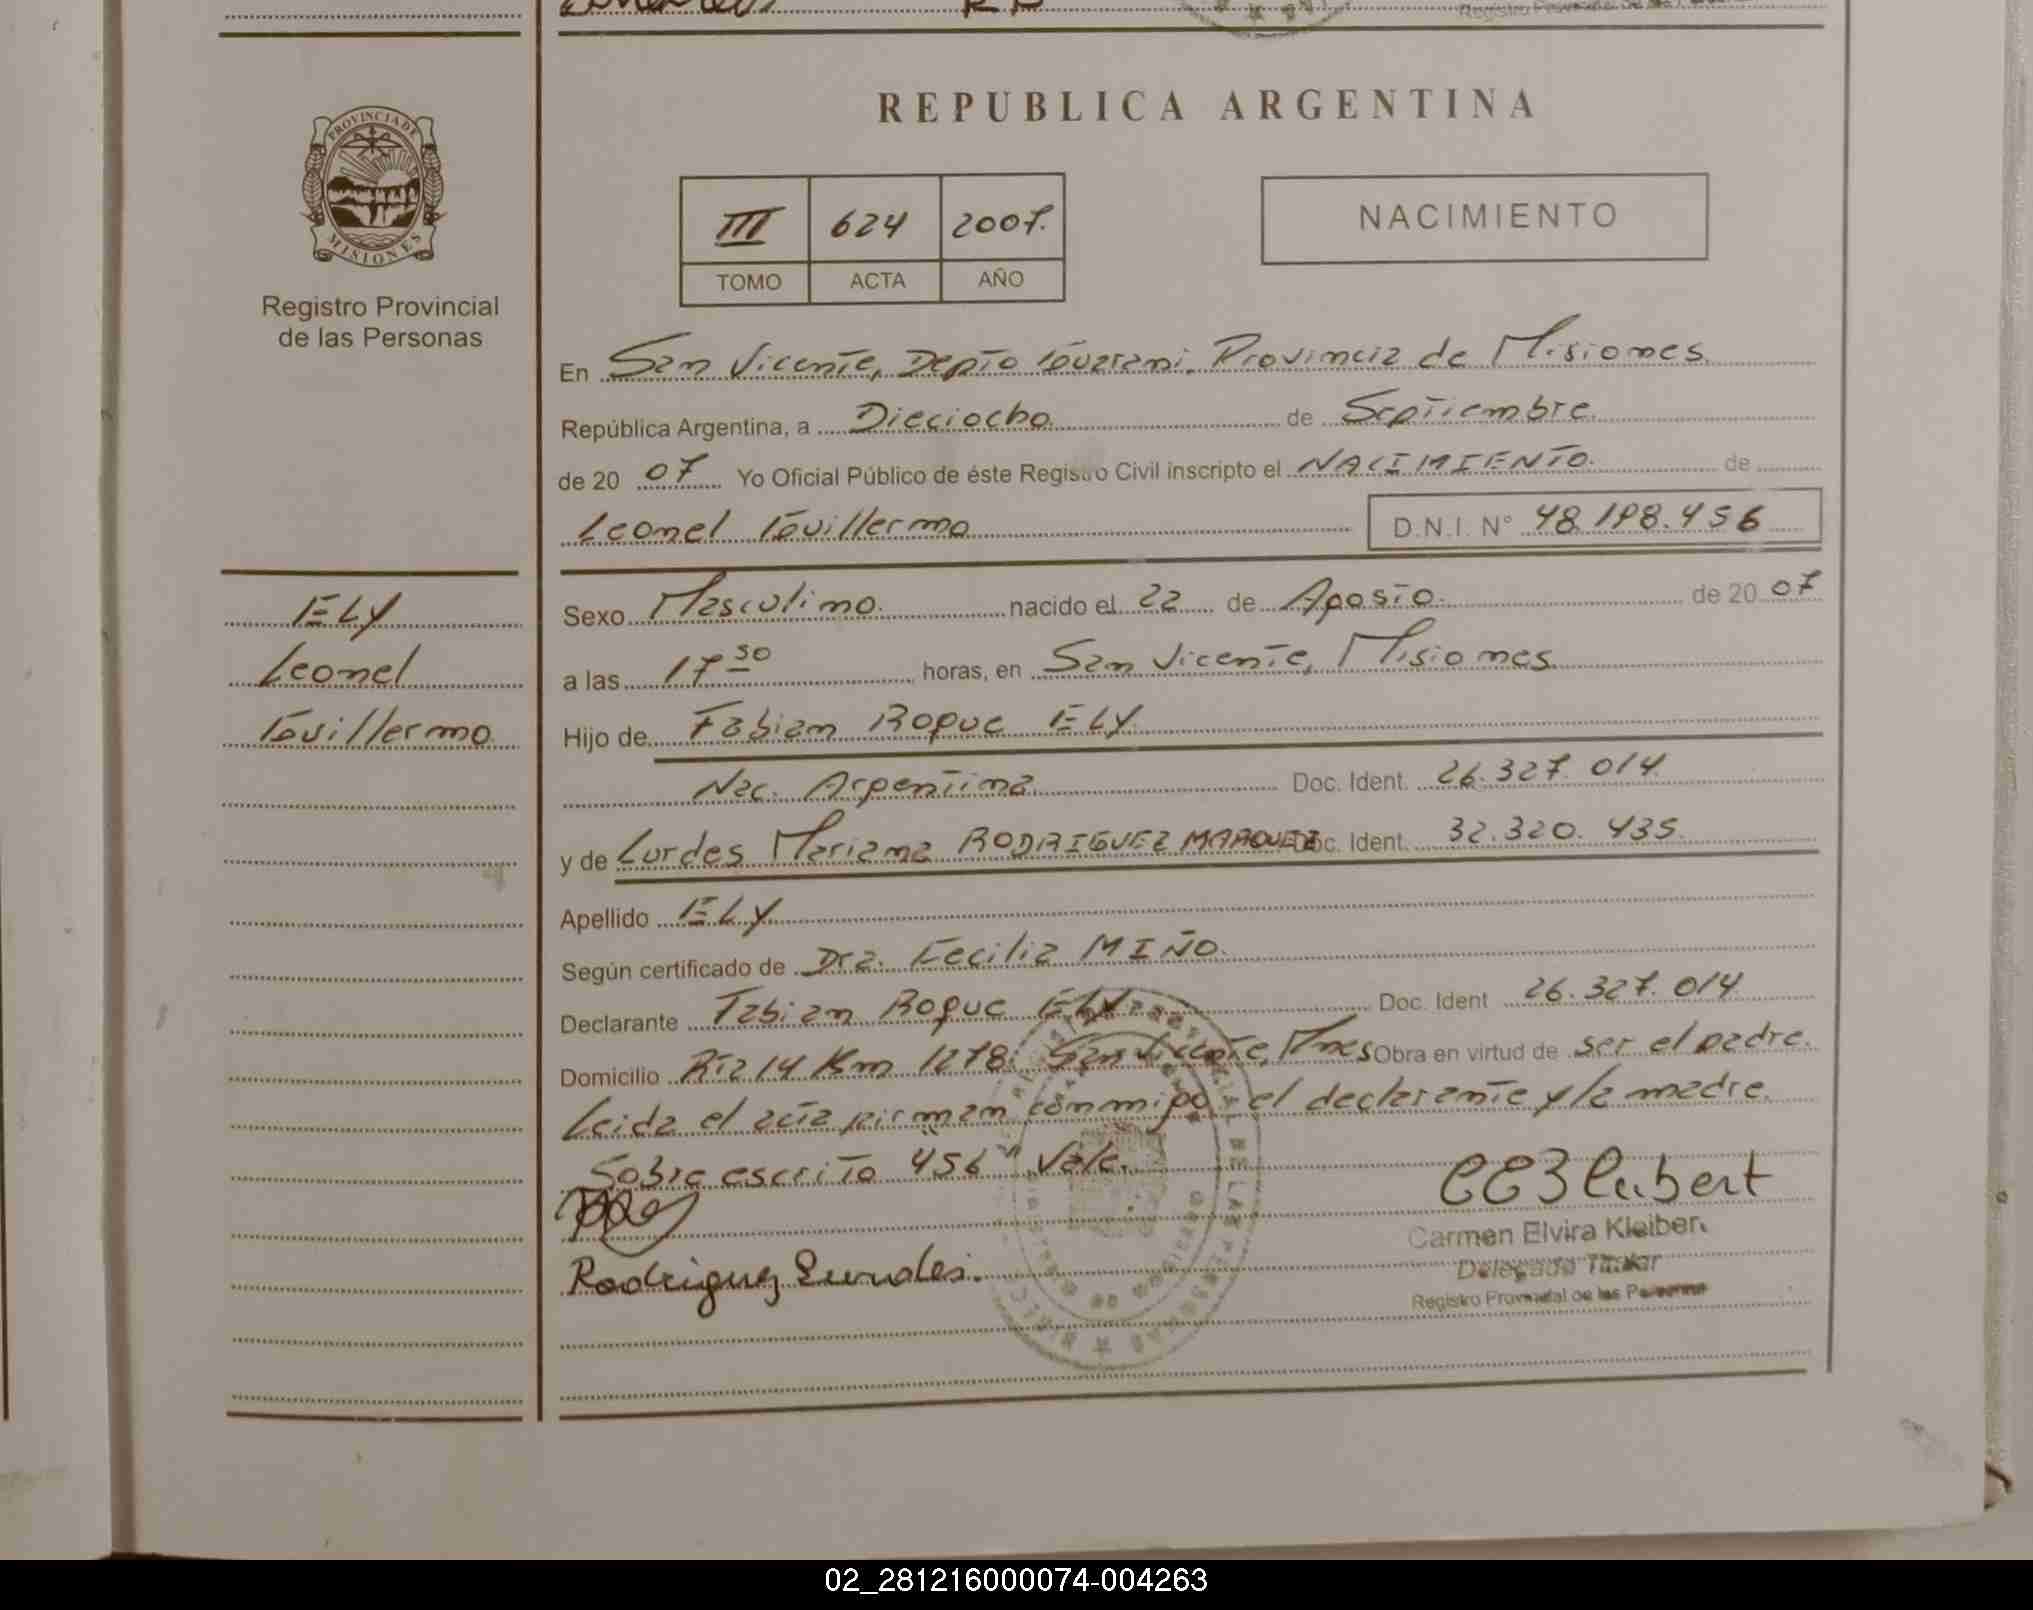 REPUBLICA ARGENTINA
PROVINCIA DE
MISIONES
Registro Provincial
de las Personas
III 624 2007.
TOMO ACTA AÑO
NACIMIENTO
En San Vicente, Depto Guarani. Provincia de Misiones.
República Argentina, a Dieciocho de Septiembre.
de 20 07 Yo Oficial Público de éste Registro Civil inscripto el NACIMIENTO. de
Leonel Guillermo D.N.I. N° 48.198.456
ELY
Leonel
Guillermo
Sexo Masculino. nacido el 22 de Agosto. de 20 07
a las 17 30 horas, en San Vicente, Misiones
Hijo de Fabian Roque ELY.
Nac. Argentina Doc. Ident. 26.327.014
y de Lurdes Mariana RODRIGUEZ MARQUEZ Doc. Ident. 32.320.435.
Apellido ELY
Según certificado de Dra. Cecilia MIÑO.
Declarante Fabian Roque ELY Doc. Ident 26.327.014
Domicilio Rta 14 Km 1278. San Vicente, Mnes Obra en virtud de ser el padre.
Leida el acta firman conmigo el declarante y la madre.
Sobre escrito "456" Vale.
Rodriguez Lurdes.
Carmen Elvira Kleiber
Delegada Titular
Registro Provincial de las Personas
02_281216000074-004263